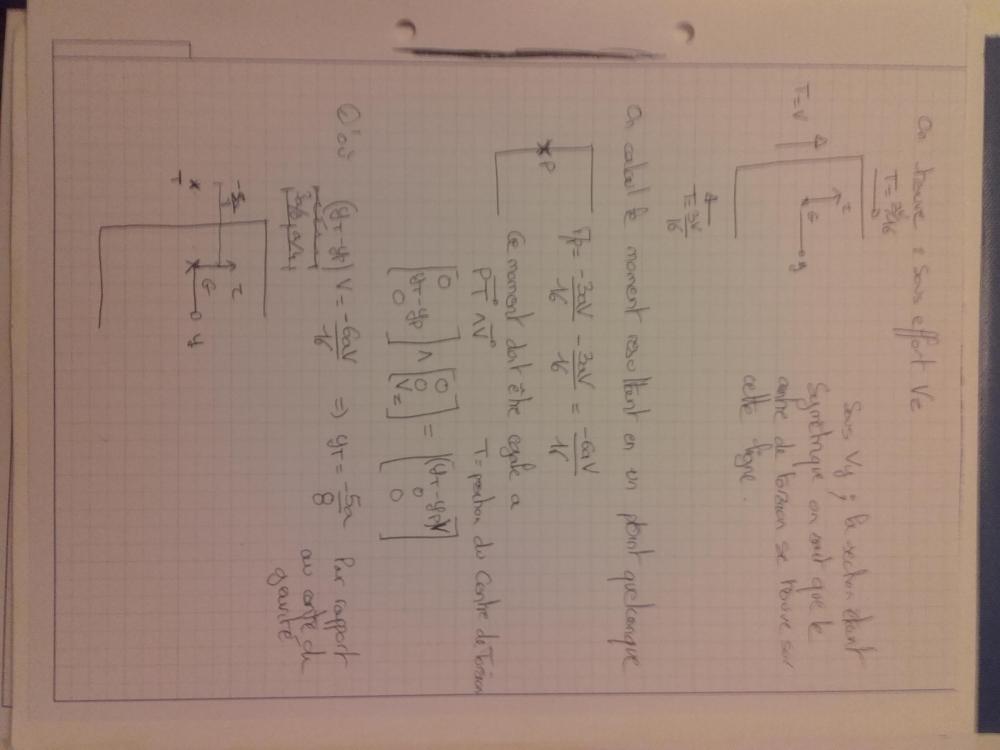 On trouve : Sous effort Vz
T = 3V/16
z
G
y
T = V
T = 3V/16
Sous Vy ; la section étant
Symétrique on sait que le
centre de torsion se trouve sur
cette ligne.
On calcul le moment résultant en un point quelconque
P
Mp = -3aV/16 - 3aV/16 = -6aV/16
Ce moment doit être égale a
PT ∧ V
T = position du Centre de Torsion
(0, yT-yp, 0) ∧ (0, 0, Vz) = ((yT-yp)V, 0, 0)
D'où (yT-yp) V = -6aV/16 => yT = -5a/8 Par rapport
au centre de
gravité
z
G
y
T